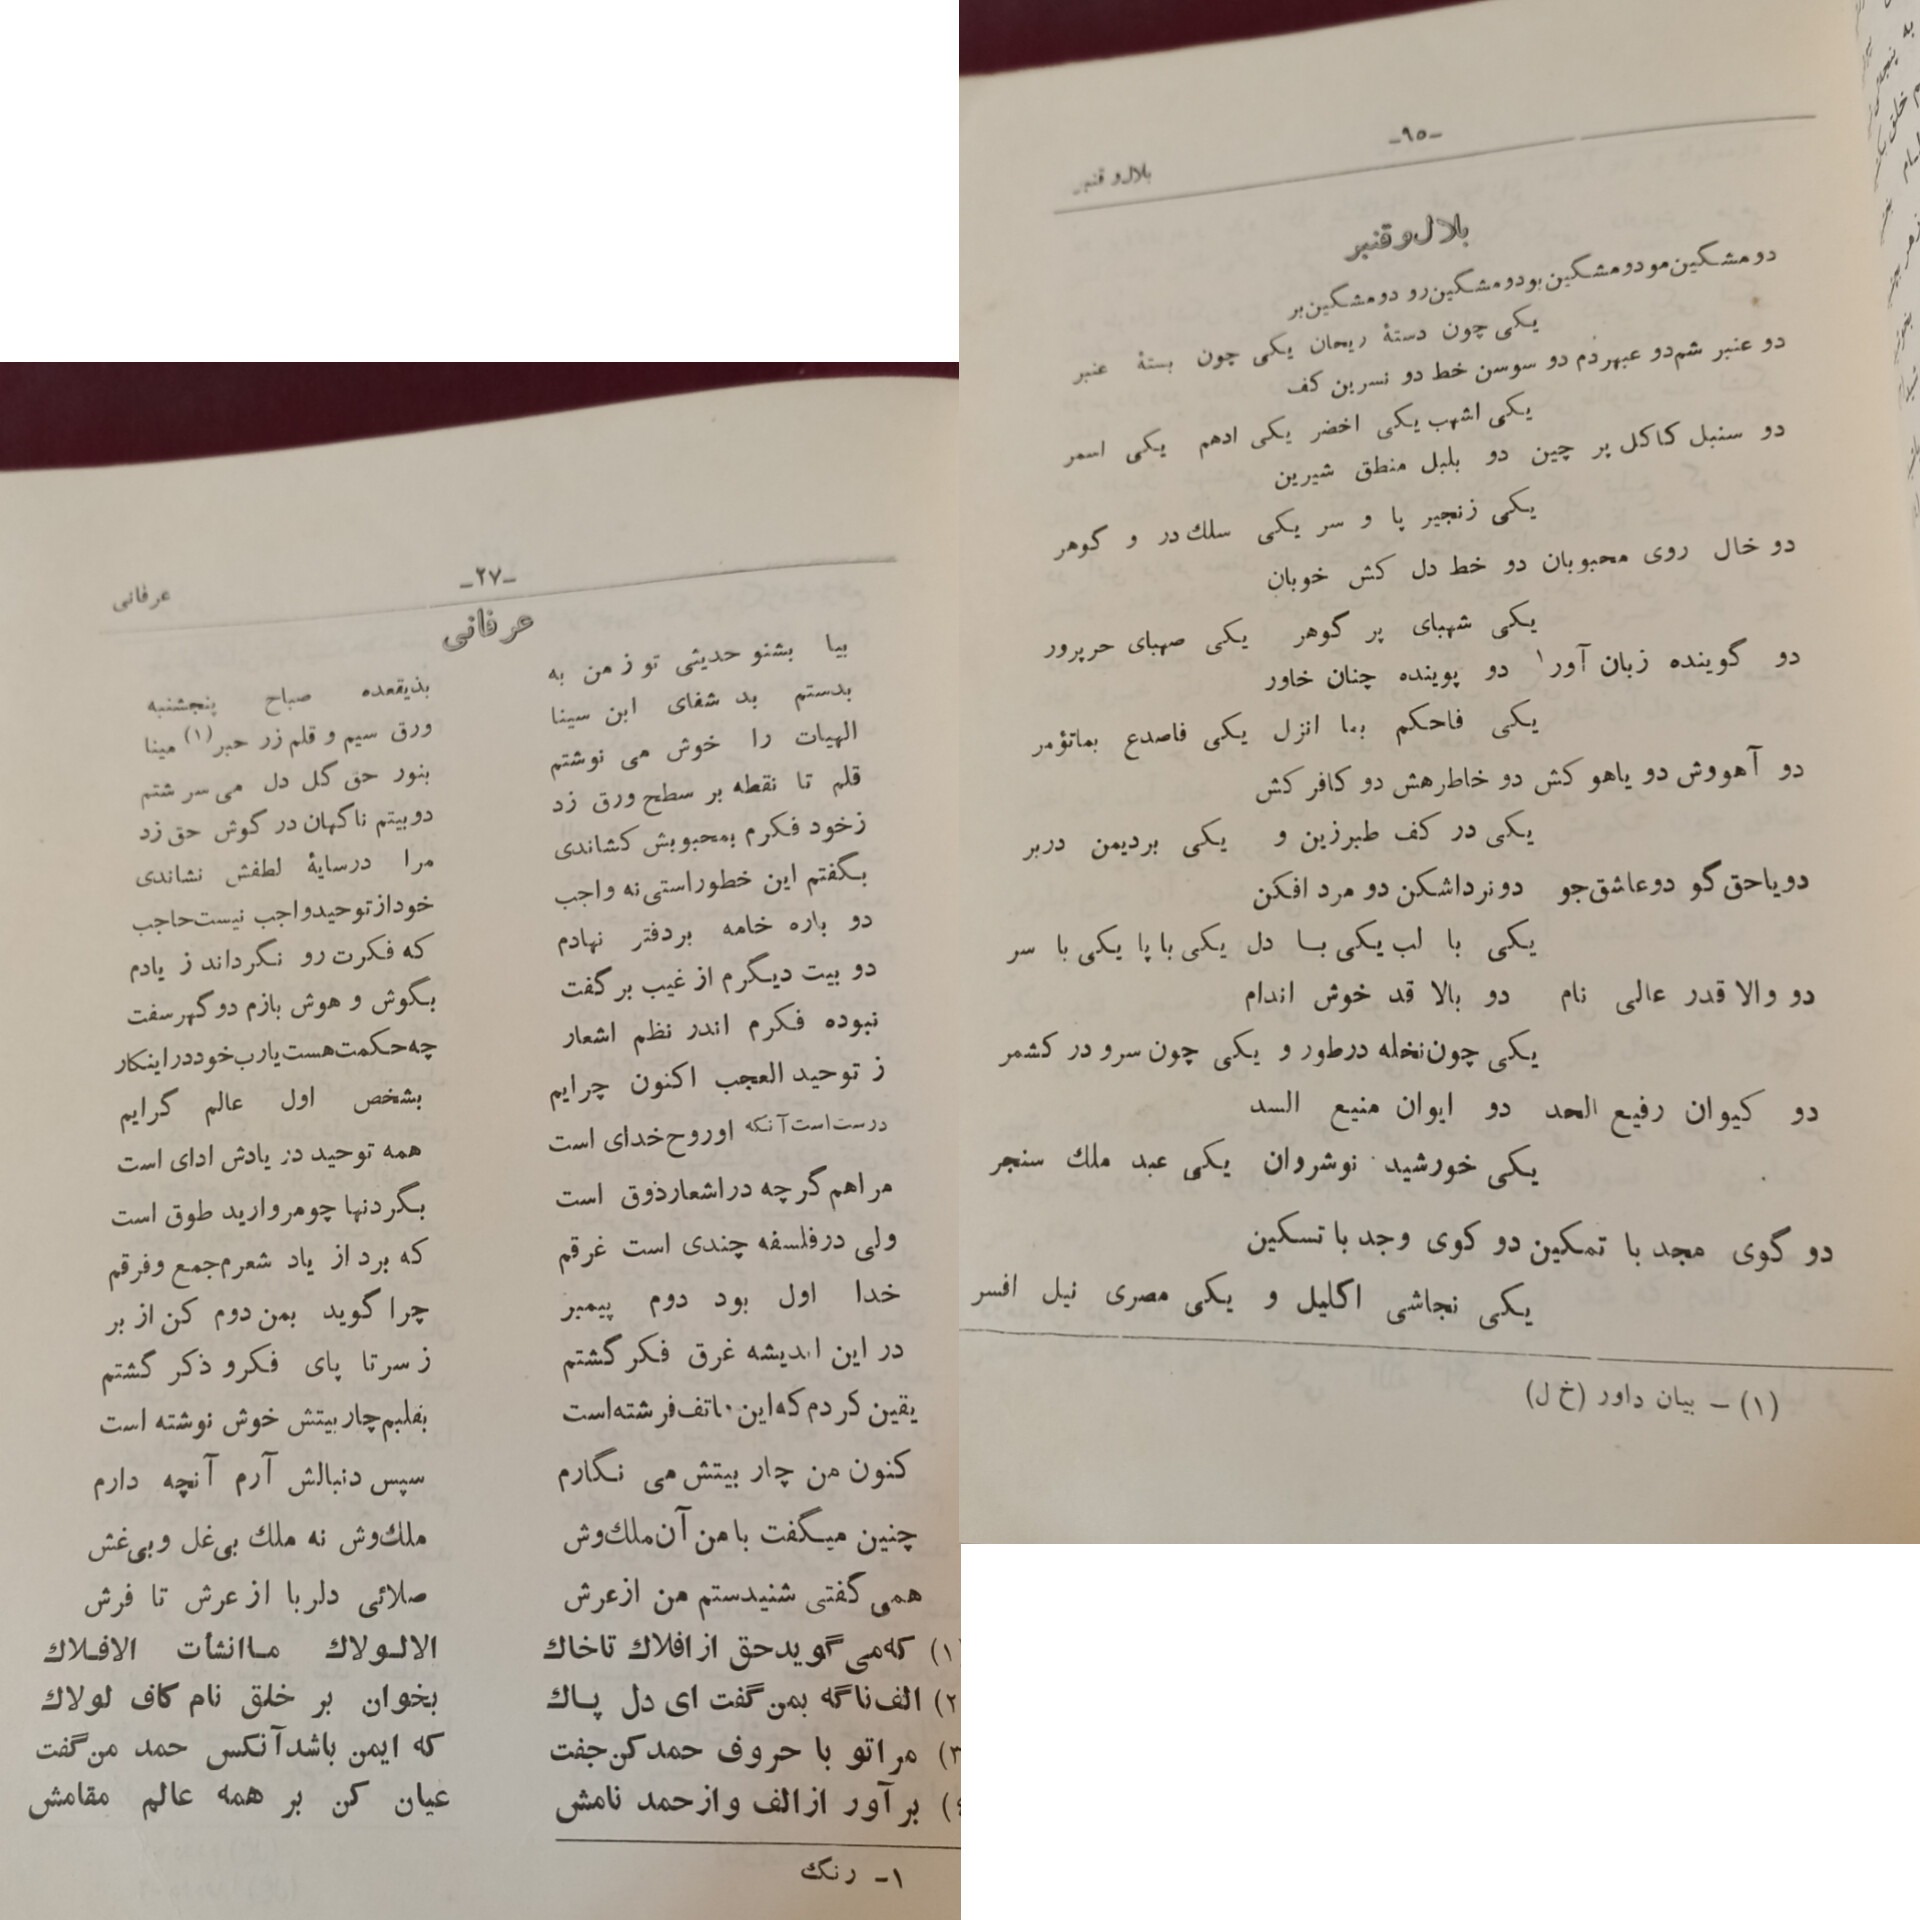 -۹۵-
بلال و قنبر
بلال و قنبر
دو مشگین مو دو مشگین بو دو مشگین رو دو مشگین بر
یکی چون دستهٔ ریحان یکی چون بستهٔ عنبر
دو عنبر شم دو عبهر دم دو سوسن خط دو نسرین کف
یکی اشهب یکی اخضر یکی ادهم یکی اسمر
دو سنبل کاکل پر چین دو بلبل منطق شیرین
یکی زنجیر پا و سر یکی سلك در و گوهر
دو خال روی محبوبان دو خط دل کش خوبان
یکی شهبای پر گوهر یکی صهبای حرپرور
دو گوینده زبان آور۱ دو پوینده چنان خاور
یکی فاحکم بما انزل یکی فاصدع بماتؤمر
دو آهووش دو یاهو کش دو خاطرهش دو کافر کش
یکی در کف طبرزین و یکی بردیمن دربر
دویاحق گو دوعاشق جو دونرداشکن دو مرد افکن
یکی با لب یکی بـا دل یکی با پا یکی با سر
دو والا قدر عالی نام دو بالا قد خوش اندام
یکی چون نخله درطور و یکی چون سرو در کشمر
دو کیوان رفیع الحد دو ایوان منیع السد
یکی خورشید نوشروان یکی عبد ملك سنجر
دو گوی مجد با تمکین دو کوی وجد با تسکین
یکی نجاشی اکلیل و یکی مصری نیل افسر
(۱) - بیان داور (خ ل)
-۲۷-
عرفانی
عرفانی
بیا بشنو حدیثی تو ز من به بذیقعده صباح پنجشنبه
بدستم بد شفای ابن سینا ورق سیم و قلم زر حبر(۱) مینا
الهیات را خوش می نوشتم بنور حق گل دل می سرشتم
قلم تا نقطه بر سطح ورق زد دوبیتم ناگهان در گوش حق زد
زخود فکرم بمحبوبش کشاندی مرا درسایهٔ لطفش نشاندی
بگفتم این خطوراستی نه واجب خود از توحیدواجب نیست حاجب
دو باره خامه بردفتر نهادم که فکرت رو نگرداند ز یادم
دو بیت دیگرم از غیب بر گفت بگوش و هوش بازم دو گهرسفت
نبوده فکرم اندر نظم اشعار چه حکمت هست یارب خود در اینکار
ز توحید العجب اکنون چرایم بشخص اول عالم گرایم
درست است آنکه اوروح خدای است همه توحید در یادش ادای است
مراهم گرچه دراشعارذوق است بگردنها چومروارید طوق است
ولی درفلسفه چندی است غرقم که برد از یاد شعرم جمع وفرقم
خدا اول بود دوم پیمبر چرا گوید بمن دوم کن از بر
در این اندیشه غرق فکر گشتم ز سر تا پای فکر و ذکر گشتم
یقین کردم که این هاتف فرشته است بقلبم چار بیتش خوش نوشته است
کنون من چار بیتش می نگارم سپس دنبالش آرم آنچه دارم
چنین میگفت با من آن ملك وش ملك وش نه ملك بی غل و بی غش
همی گفتی شنیدستم من از عرش صلائی دلربا از عرش تا فرش
۱) که می گوید حق از افلاك تاخاك الالـولاك مـاانشأت الافـلاك
۲) الف ناگه بمن گفت ای دل پـاك بخوان بر خلق نام کاف لولاك
۳) مراتو با حروف حمد کن جفت که ایمن باشد آنکس حمد من گفت
۴) بر آور از الف و از حمد نامش عیان کن بر همه عالم مقامش
۱- رنگ